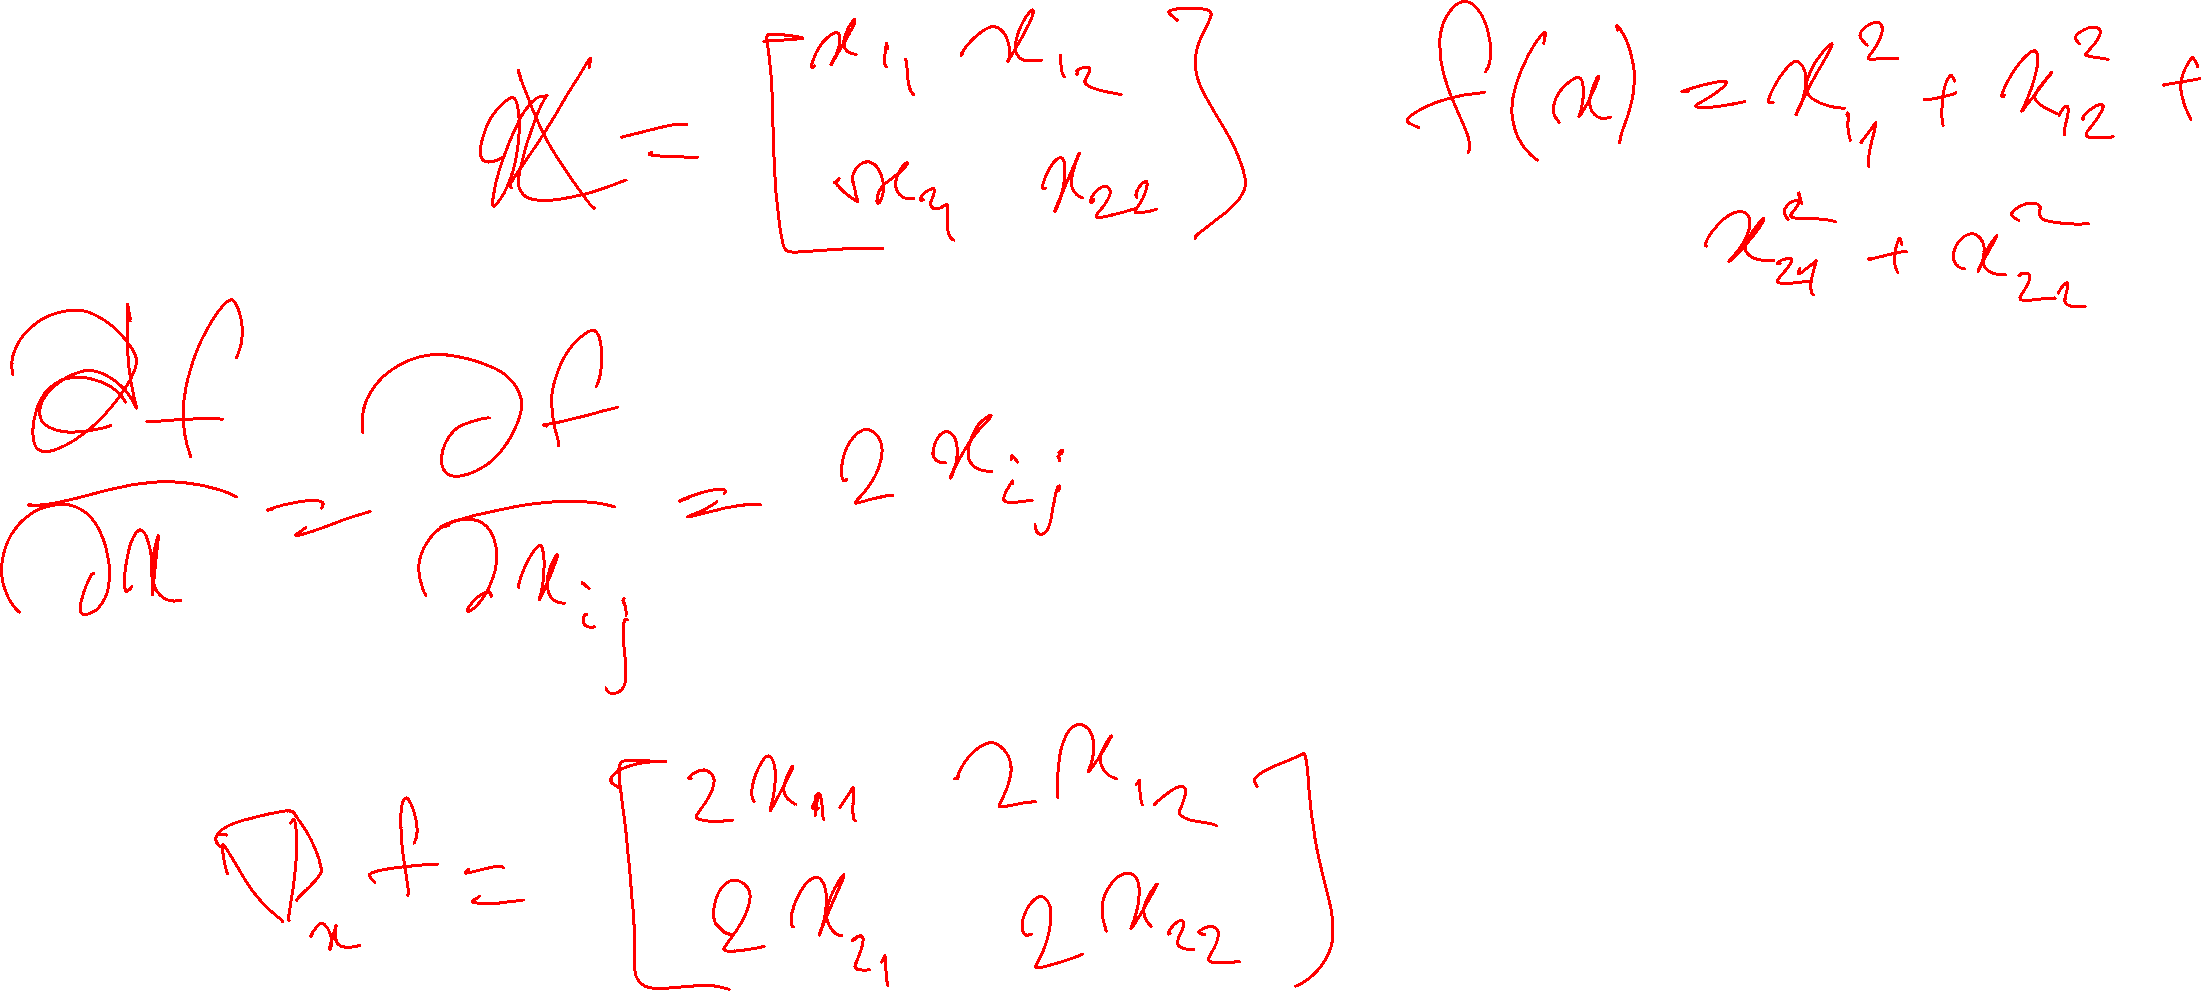 X = [ x₁₁ x₁₂ f(x) = x₁₁² + x₁₂² +
x₂₁ x₂₂ ] x₂₁² + x₂₂²
∂f/∂x = ∂f/∂xᵢⱼ = 2 xᵢⱼ
∇ₓ f = [ 2x₁₁ 2x₁₂
2x₂₁ 2x₂₂ ]